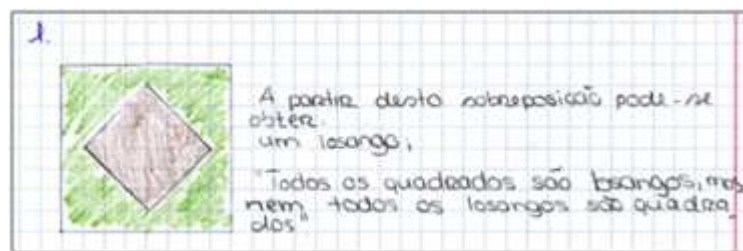 1.
A partir desta sobreposição pode-se
obter.
um losango,
"Todos os quadrados são losangos, mas
nem todos os losangos são quadra
dos"